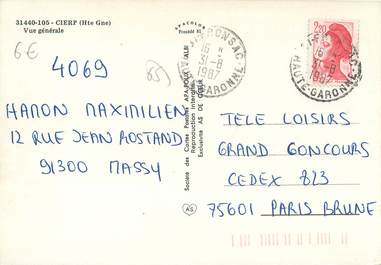 31440-105 - CIERP (Hte Gne)
Vue générale
6€
4069
85
HAMON MAXIMILIEN
12 RUE JEAN ROSTAND
91300 MASSY
APA-POUX - ALBI
Société des Cartes Postales APA-POUX - ALBI
Reproduction interdite
Exclusivité AS DE CŒUR
AS
16 H
31-8
1987
HAUTE-GARONNE
2,20
16 H
31-8
1987
HAUTE-GARONNE
TELE LOISIRS
GRAND CONCOURS
CEDEX 823
75601 PARIS BRUNE